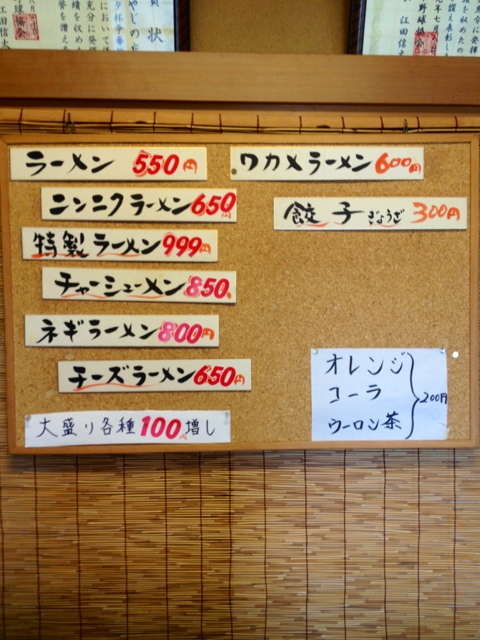 賞状
江田信太
ラーメン 550円
ニンニクラーメン 650円
特製ラーメン 999円
チャーシューメン 850円
ネギラーメン 800円
チーズラーメン 650円
大盛り各種 100円増し
ワカメラーメン 600円
餃子ぎょうざ 300円
オレンジ
コーラ
ウーロン茶
200円